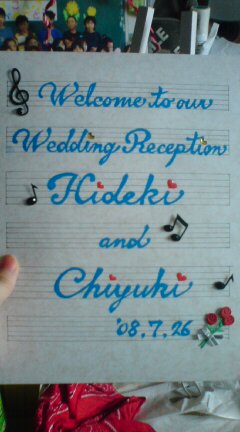 Welcome to our
Wedding Reception
Hideki
and
Chiyuki
'08.7.26